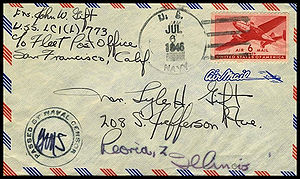 Ens. John W. Gift
U.S.S. LC(L) 773
℅ Fleet Post Office
San Francisco, Calif
U. S.
JUL
6
1945
NAVY
AIR 6¢ MAIL
UNITED STATES OF AMERICA
Air Mail
Lyle H. Gift
208 S. Jefferson Ave.
Peoria, 2
Illinois
PASSED BY NAVAL CENSOR